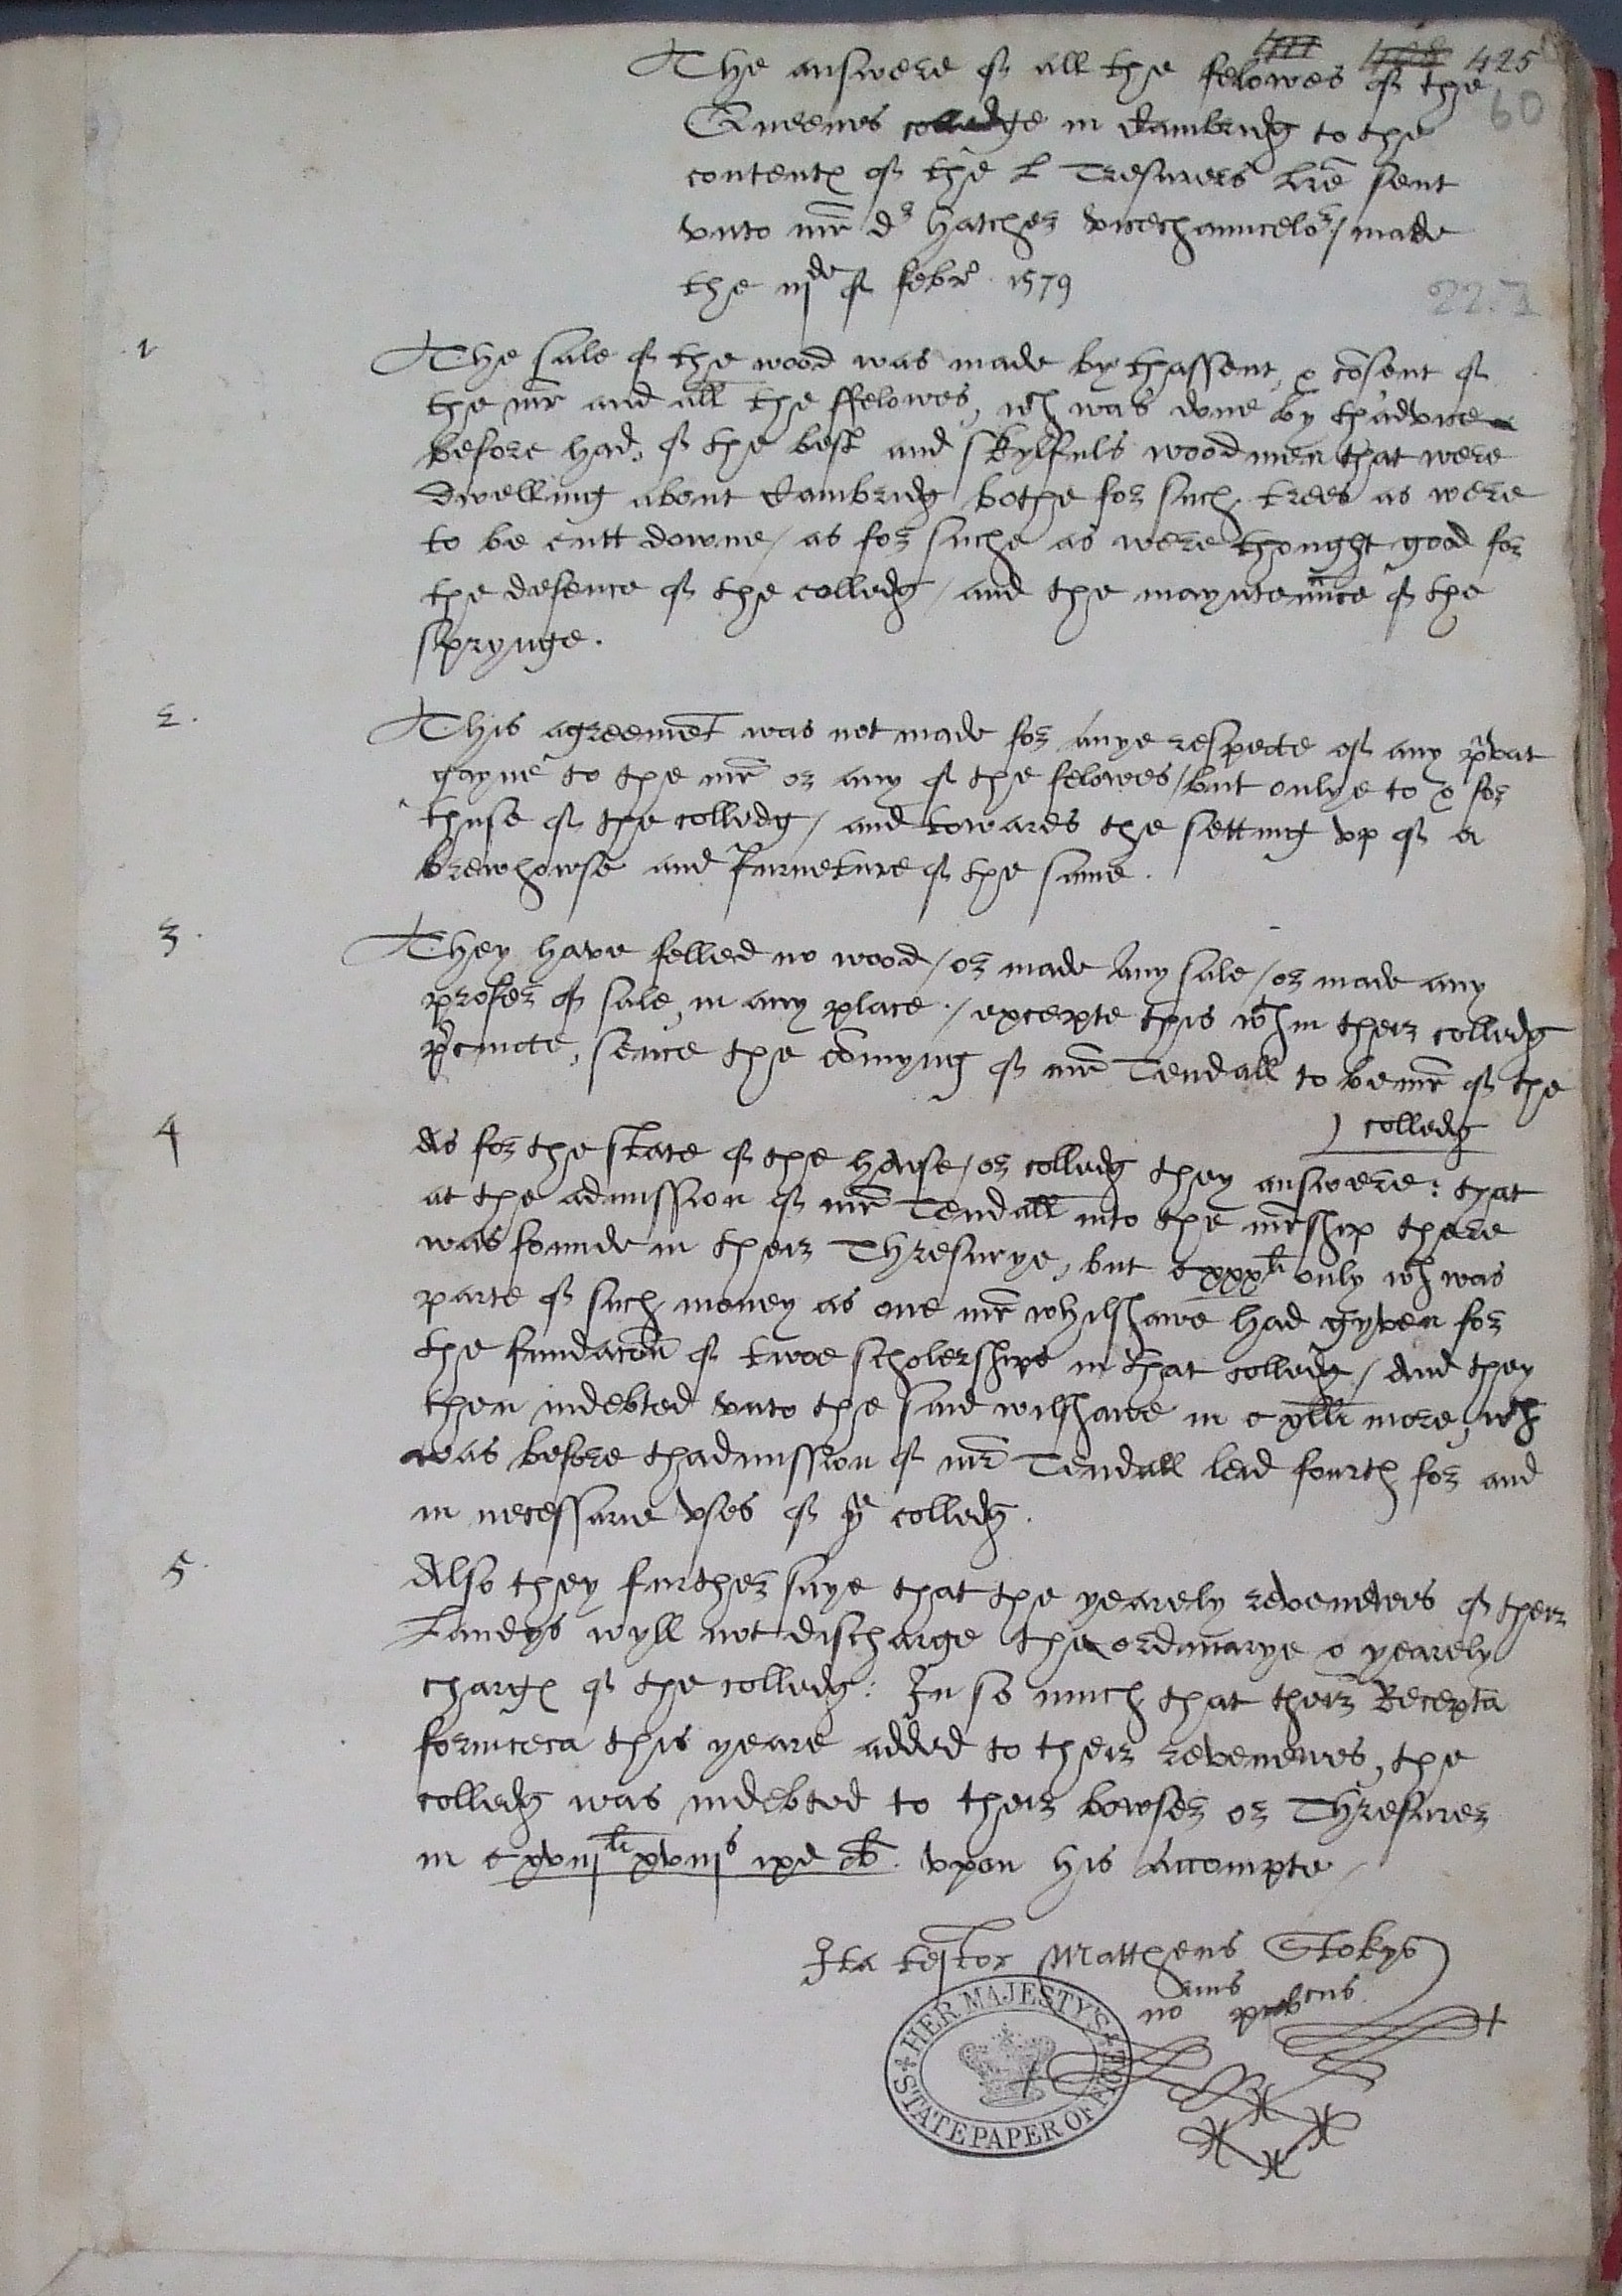 425
60
The answere of all the felowes of the
Queenes colledge in Cambridg to the
contentes of the L Tresurers lre sent
vnto mr dr Hatcher vicechauncelor / made
the iijde of febr 1579
22.I
1
The sale of the wood was made by thassent, & cōsent of
the mr and all the ffelowes, wch was done by thadvice
before had, of the best and skylfuls woodmen that were
dwelling about Cambridg bothe for such trees as were
to be cutt downe / as for suche as were thought good for
the defence of the colledg / and the mayntenn̄ce of the
sprynge.
2.
This agreemēt was not made for anye respecte of any p̱vat
gayne to the mr or any of the felowes / but onlye to & for
thuse of the colledg / and towards the setting vp of a
brewhowse and furneture of the same.
3.
They have felled no wood / or made any sale / or made any
profer of sale, in any place / excepte this wthin their colledg
p̱cincte, sence the cōmyng of mr Tendall to be mr of the
colledg
4
As for the state of the house / or colledg they answere: that
at the admission of mr Tendall into the mrship there
was founde in their Thresurye, but cxxxli only wch was
parte of such money as one mr whilshawe had gyven for
the fundacōn of twoe scholershipps in that colledg / And they
then indebted vnto the said wilshawe in c xlli more, wch
was before thadmission of mr Tendall leid fourth for and
in necessarie vses of ye colledg.
5.
Also they further saye that the yearely revenewes of their
Landys wyll not discharge the ordinarye & yearely
charges of the colledg: In so much that their Recepta
forinceca this yeare added to their revenewes, the
colledg was indebted to their bowser or Thresurer
in c xviijli xviijs ixd ob. vpon his Accompte /
Ita testor Mattheus Stokys
norius publicus
HER MAJESTY'S
STATE PAPER OFFICE